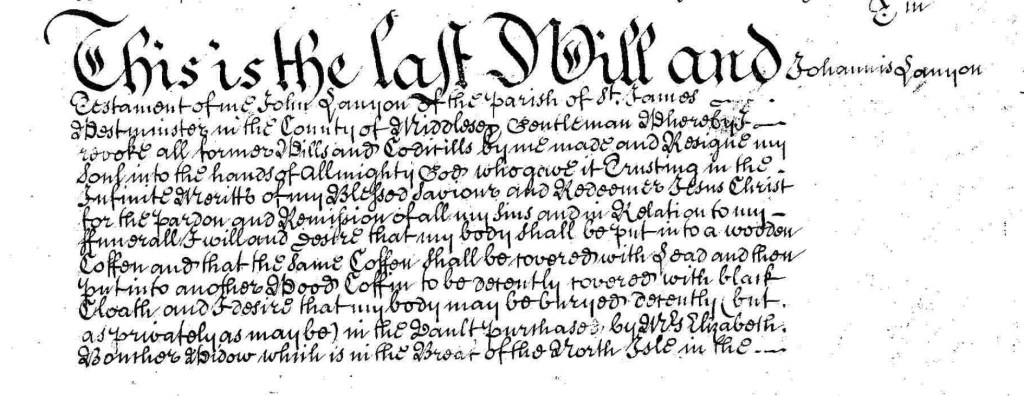 T in
This is the last Will and Johannis Lanyon
Testament of me John Lanyon of the parish of St. James
Westminster in the County of Middlesex Gentleman Whereby I
revoke all former Wills and Codicills by me made and Resigne my
soul into the hands of Allmighty God who gave it Trusting in the
Infinite Meritts of my Blessed Saviour and Redeemer Jesus Christ
for the pardon and Remission of all my sins and in Relation to my
ffunerall I will and desire that my body shall be put into a wooden
Coffen and that the same Coffen shall be covered with Lead and then
put into another Wood Coffin to be decently covered with black
Cloath and I desire that my body may be buryed decently (but
as privately as may be) in the Vault purchased by Mrs Elizabeth
Widow which is in the Breat of the North Isle in the